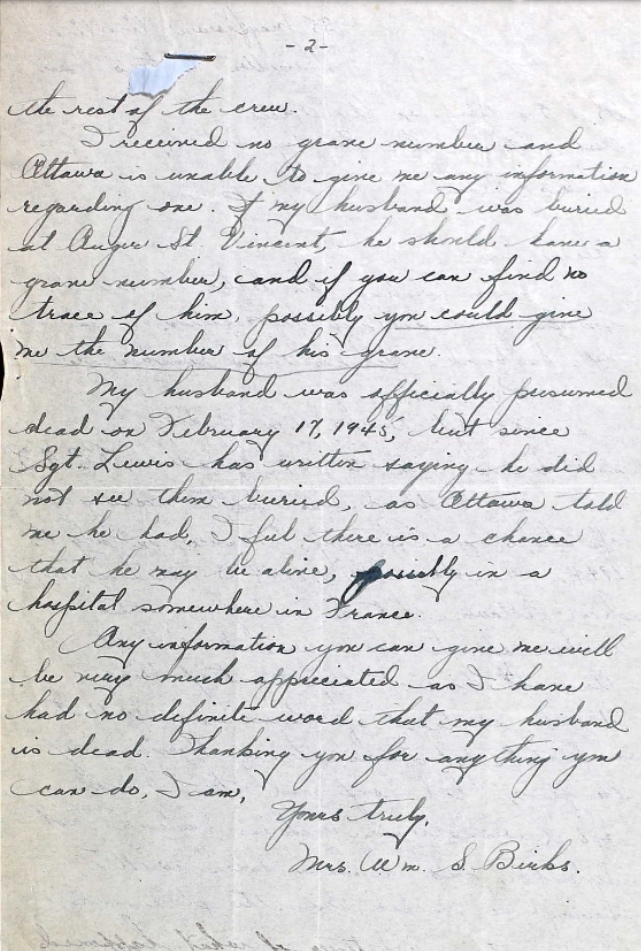 -2-
the rest of the crew.
I received no grave number and
Ottawa is unable to give me any information
regarding one. If my husband was buried
at Auger St. Vincent, he should have a
grave number, and if you can find no
trace of him, possibly you could give
me the number of his grave.
My husband was officially presumed
dead on February 17, 1945, but since
Sgt. Lewis has written saying he did
not see them buried, as Ottawa told
me he had, I feel there is a chance
that he may be alive, possibly in a
hospital somewhere in France.
Any information you can give me will
be very much appreciated as I have
had no definite word that my husband
is dead. Thanking you for anything you
can do, I am,
Yours truly,
Mrs. Wm. S. Birks.